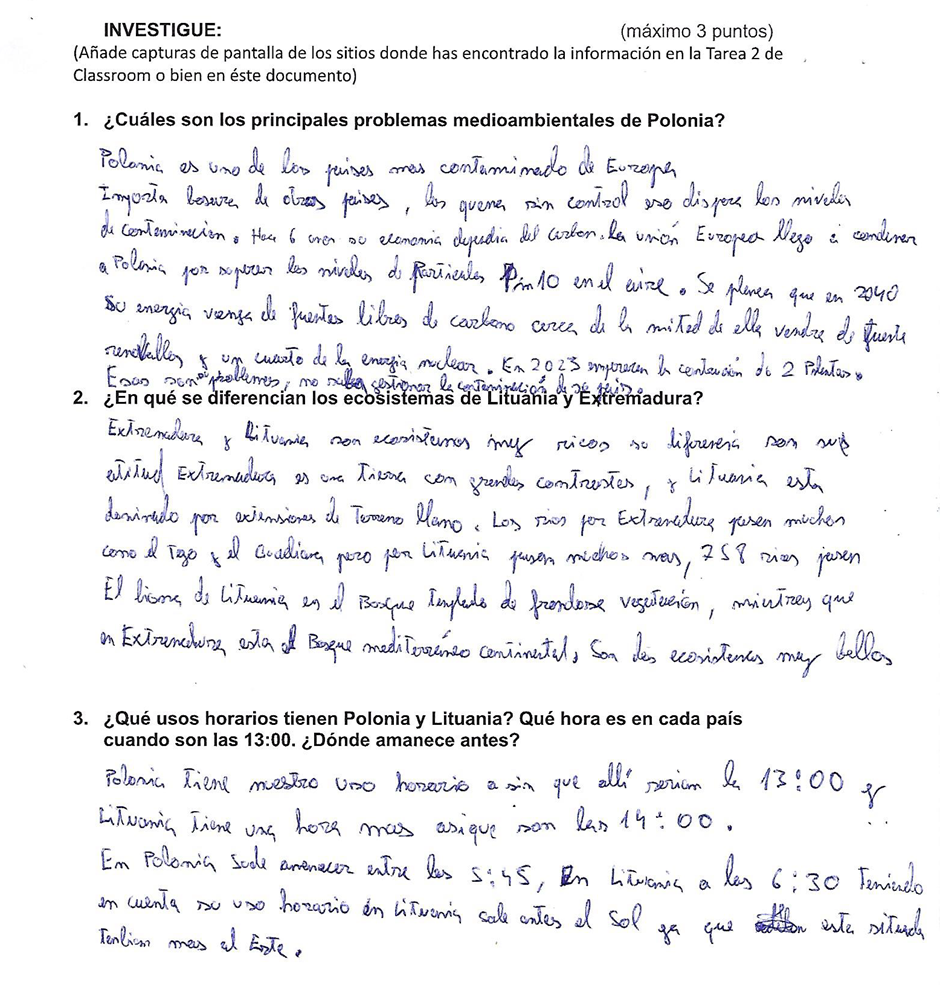 INVESTIGUE: (máximo 3 puntos)
(Añade capturas de pantalla de los sitios donde has encontrado la información en la Tarea 2 de
Classroom o bien en éste documento)
1. ¿Cuáles son los principales problemas medioambientales de Polonia?
Polonia es uno de los paises mas contaminado de Europa
Importa basura de otros paises, las quema sin control eso dispara los niveles
de contaminacion. Hace 6 años su economia dependia del carbon. la unión Europea llego a condenar
a Polonia por superar los niveles de Particulas Pm10 en el aire. Se planea que en 2040
su energia venga de fuentes libres de carbono cerca de la mitad de ella vendra de fuente
y un cuarto de la energia nuclear. En 2023 empezaran la contrucion de 2
Esos son problemas, no gestionar la contaminación de su pais.
2. ¿En qué se diferencían los ecosistemas de Lituania y Extremadura?
Extremadura y Lituania son ecosistemas muy ricos su son sus
Extremadura es una Tierra con grandes contrastes, y Lituania esta
dominado por extensiones de Terreno llano. Los rios por Extremadura pasan muchos
como el Tajo y el Guadiana pero por Lituania pasan muchos mas, 758 rios pasan
El bioma de Lituania en el Bosque Templado de frondosa vegetación, mientras que
en Extremadura esta el Bosque mediterráneo continental, Son dos ecosistemas muy bellos
3. ¿Qué usos horarios tienen Polonia y Lituania? Qué hora es en cada país
cuando son las 13:00. ¿Dónde amanece antes?
Polonia Tiene nuestro uso horario a sin que allí serian la 13:00 y
Lituania Tiene una hora mas asique son las 14:00.
En Polonia Suele amanecer entre las 5:45, En Lituania a las 6:30 Teniendo
en cuenta su uso horario en Lituania sale antes el Sol ya que esta situada
Tambien mas al Este.